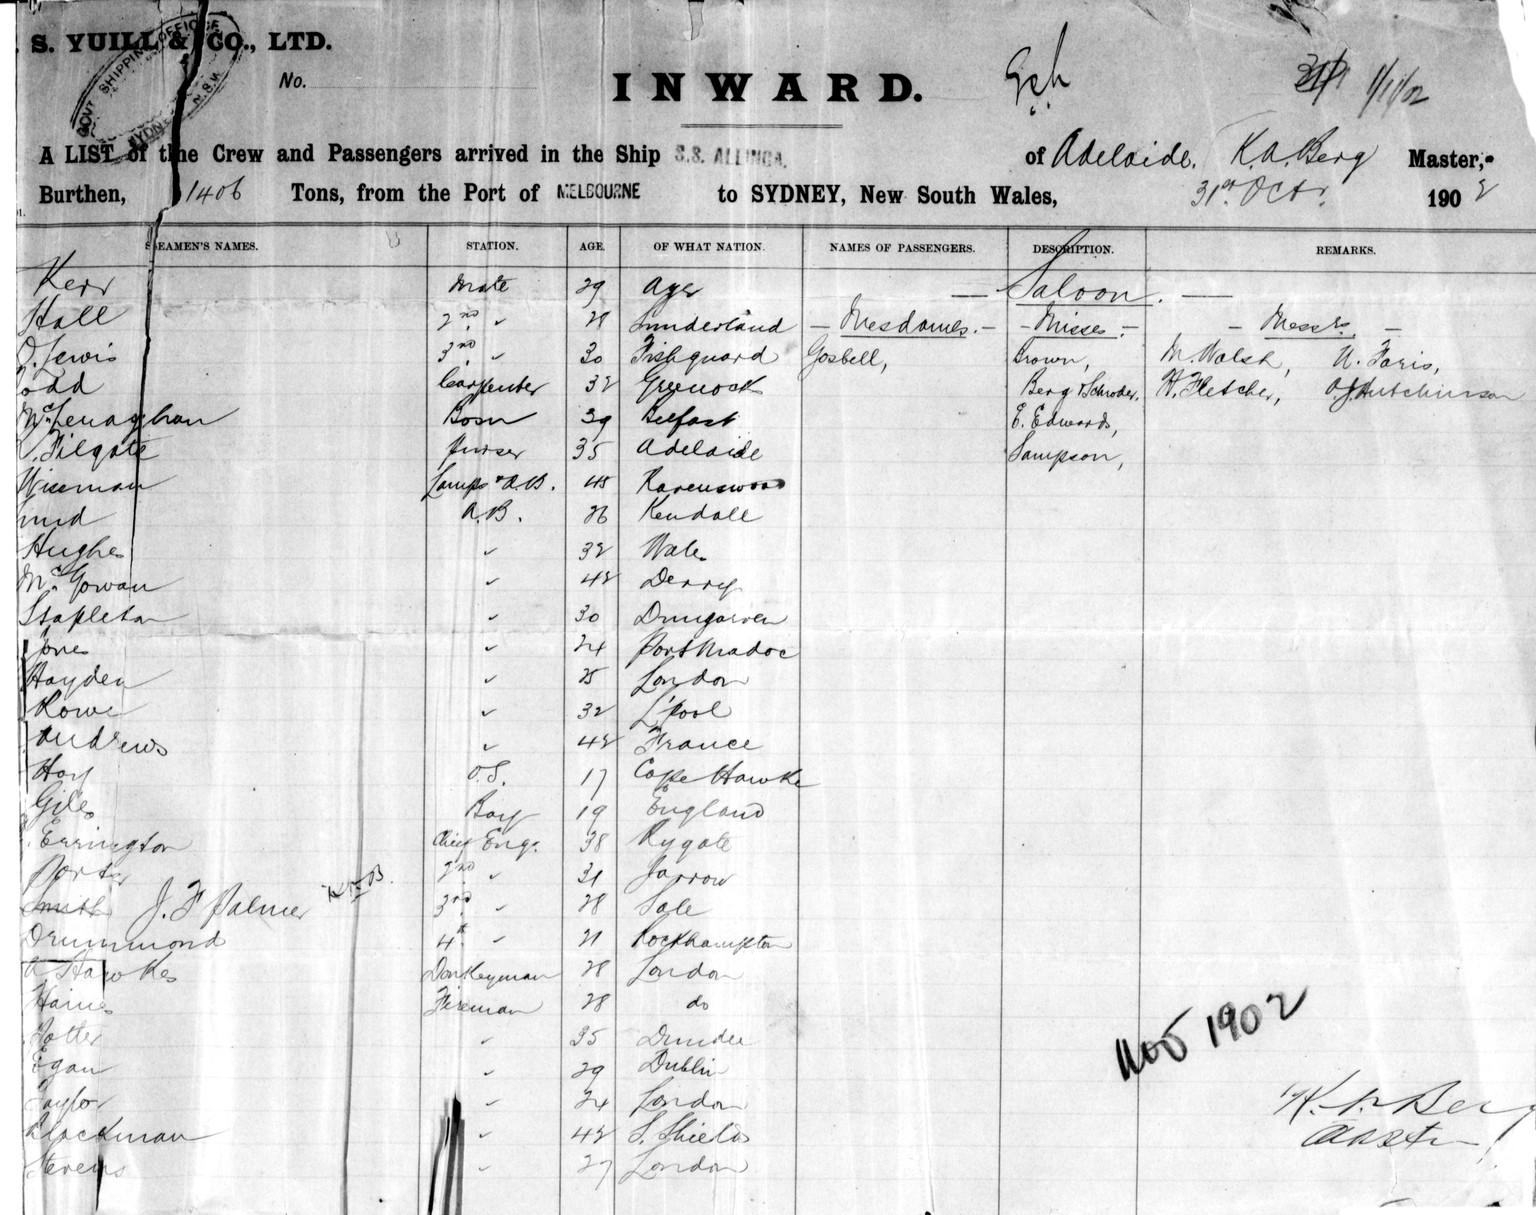 S. YUILL & CO., LTD.
GOVT SHIPPING OFFICE SYDNEY N.S.W.
No.
INWARD.
1/11/02
A LIST of the Crew and Passengers arrived in the Ship S.S. ALLINGA. of Adelaide, K.A. Berg Master,
Burthen, 1406 Tons, from the Port of MELBOURNE to SYDNEY, New South Wales, 31st Octr. 1902
SEAMEN'S NAMES. STATION. AGE. OF WHAT NATION. NAMES OF PASSENGERS. DESCRIPTION. REMARKS.
Kerr Mate 29 Ayr — Saloon. —
Hall 2nd " 28 Sunderland — Mesdames. — — Misses — — Messrs. —
O. Lewis 3rd " 30 Fishguard Gosbell, Brown, M. Walsh, N. Faris,
odd Carpenter 32 Greenock Berg & Schroder, H. Fletcher, Hutchinson
McLenaghan Bosn 39 Belfast E. Edwards,
Filgate Purser 35 Adelaide Sampson,
Wiseman Lamps & A.B. 45 Ravenswood
A.B. 26 Kendall
Hughes " 32 Wales
McGowan " 42 Derry
Stapleton " 30 Dungarven
Jones " 24 Portmadoc
Hayden " 25 London
Rowe " 32 L'pool
Andrews " 42 France
Hoy O.S. 17 Cape Hawke
Giles Boy 19 England
Errington Chief Eng. 38 Rygate
Porter 2nd " 31 Jarrow
Smith J. F. Palmer 3rd " 28 Sale
Drummond 4th " 21 Rockhampton
Hawkes Donkeyman 28 London
Haines Fireman 28 do
Potter " 35 Dundee
Egan " 29 Dublin
Taylor " 24 London
Blackman " 42 S. Shields
Stevens " 27 London
NOV 1902
K. A. Berg
Master